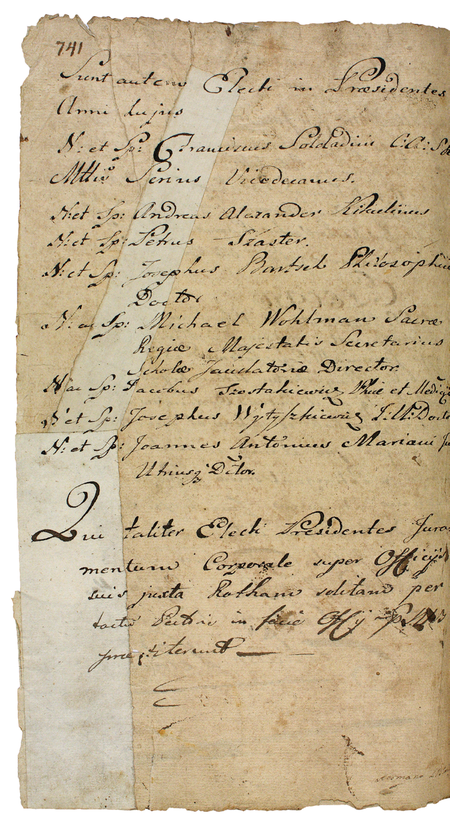 741
Sunt autem Electi in Præsidentes
Anni hujus
N: et Sp: Franciscus Soldadini C: A: S R
Mttis Senius Vicedecanus.
N: et Sp: Andreas Alexander Kikulinus
N: et Sp: Petrus Szaster.
N: et Sp: Josephus Bartsch Philosophiæ
Doctor
N: ac Sp: Michael Wohlman Sacræ
Regiæ Majestatis Secretarius
Scholæ Director.
N ac Sp: Jacobus Szostakiewicz Phiæ et Medicinæ
N: et Sp: Josephus Wytyszkiewicz J. U. Doctor
N: et Sp: Joannes Antonius Mariani Ju
Utriusq Dctor.
Qui taliter Electi Presidentes Jura
mentum Corporale super Officijs
suis juxta Rotham solitam per
tactis Pectoris in facie Officij
præstiterunt